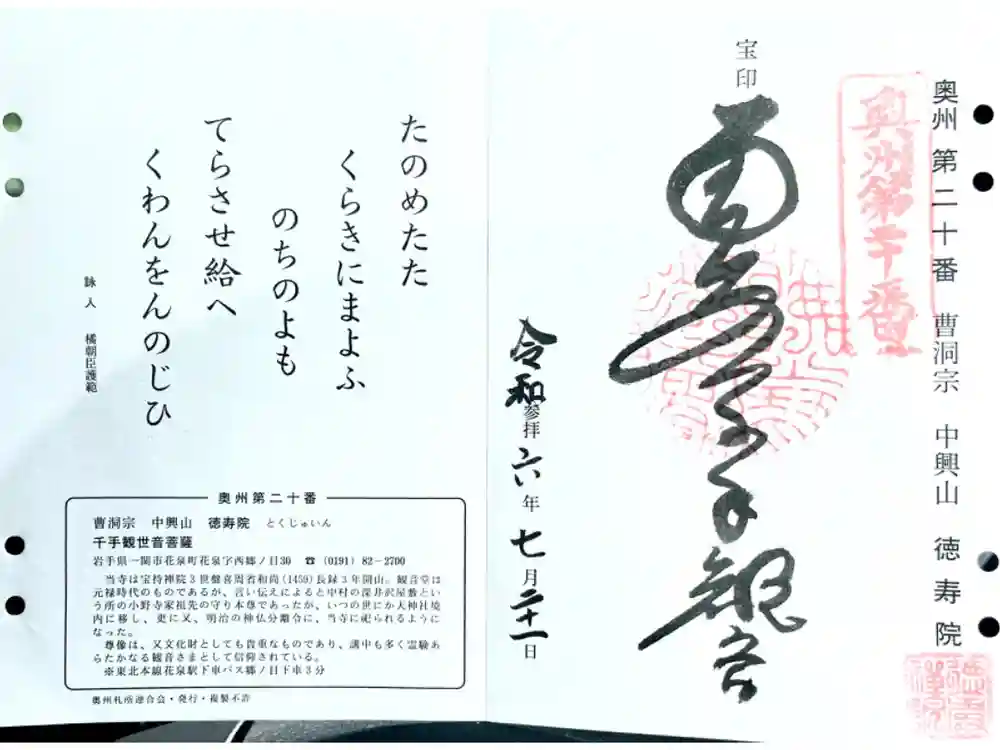 奥州 第二十番 曹洞宗 中興山 徳寿院
奥州第二十番
宝印
千手観音
令和参拝六年七月二十一日
たのめたた
くらきにまよふ
のちのよも
てらさせ給へ
くわんをんのじひ
詠人 橘朝臣護範
奥州第二十番
曹洞宗 中興山 徳寿院 とくじゅいん
千手観世音菩薩
岩手県一関市花泉町花泉字西郷ノ目30 ☎ (0191) 82-2700
当寺は宝持禅院3世盤喜周省和尚(1459)長録3年開山。観音堂は
元禄時代のものであるが、言い伝えによると中村の深井沢屋敷とい
う所の小野寺家祖先の守り本尊であったが、いつの世にか天神社境
内に移し、更に又、明治の神仏分離令に、当寺に祀られるように
なった。
尊像は、又文化財としても貴重なものであり、講中も多く霊験あ
らたかなる観音さまとして信仰されている。
※東北本線花泉駅下車バス郷ノ目下車3分
奥州札所連合会・発行・複製不許